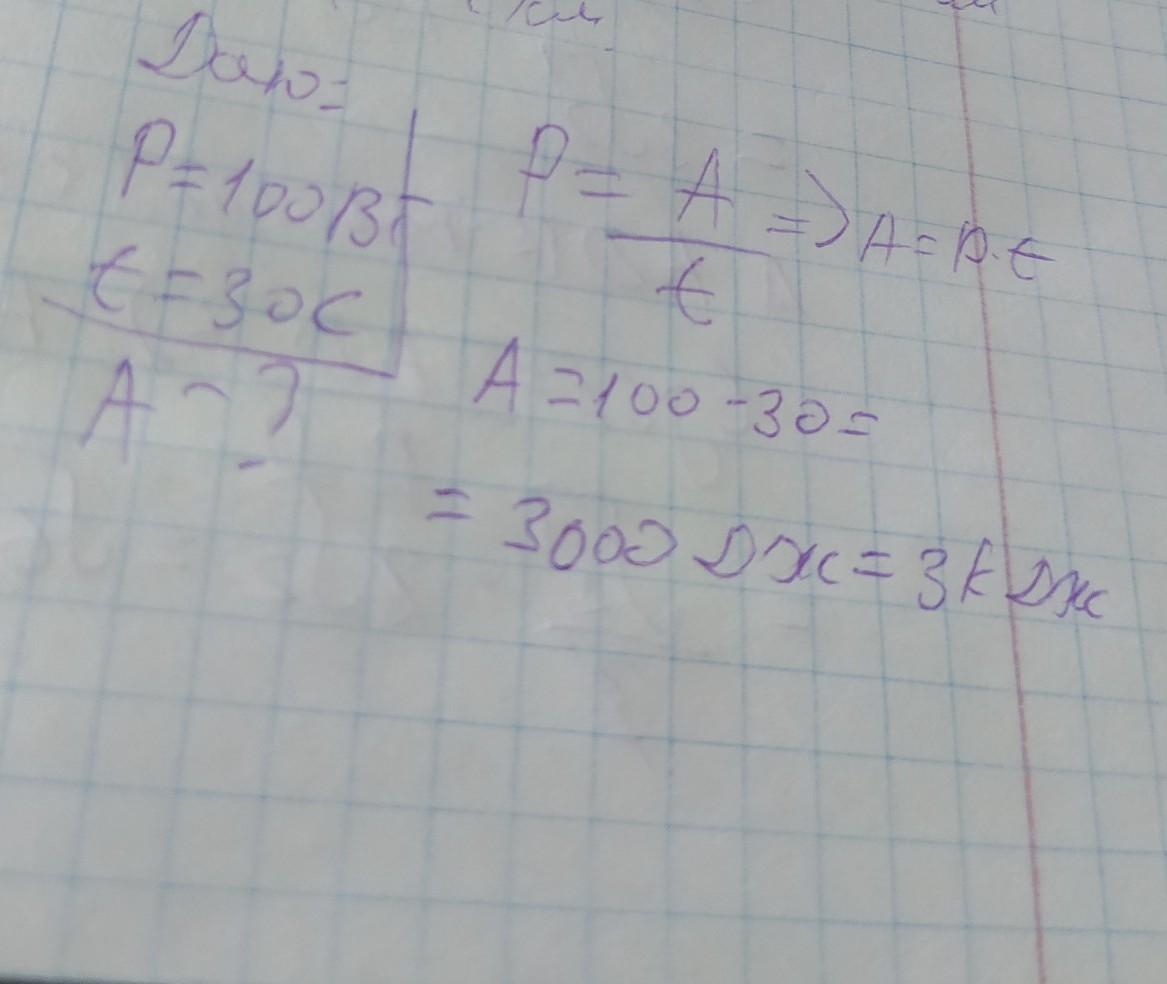 Дано:
P = 100 Вт
t = 30 с
A - ?
P = A / t => A = p · t
A = 100 - 30 =
= 3000 Дж = 3 k Дж